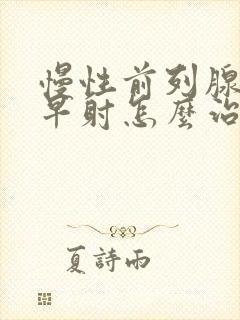 慢性前列腺
早射怎麼治
夏詩雨